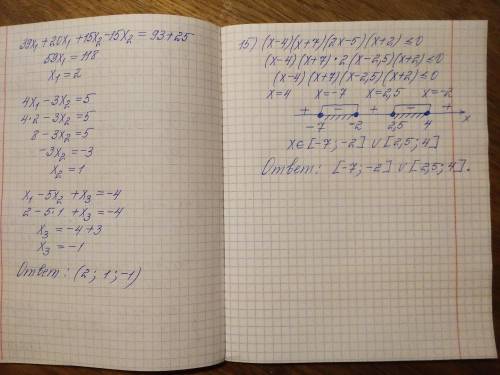 39x₁ + 20x₁ + 15x₂ - 15x₂ = 93 + 25
59x₁ = 118
x₁ = 2
4x₁ - 3x₂ = 5
4·2 - 3x₂ = 5
8 - 3x₂ = 5
-3x₂ = -3
x₂ = 1
x₁ - 5x₂ + x₃ = -4
2 - 5·1 + x₃ = -4
x₃ = -4 + 3
x₃ = -1
Ответ: (2; 1; -1)
15) (x-4)(x+7)(2x-5)(x+2) ≤ 0
(x-4)(x+7)·2(x-2,5)(x+2) ≤ 0
(x-4)(x+7)(x-2,5)(x+2) ≤ 0
x=4 x=-7 x=2,5 x=-2
+ - + - +
-7 -2 2,5 4 x
x ∈ [-7; -2] ∪ [2,5; 4]
Ответ: [-7; -2] ∪ [2,5; 4].